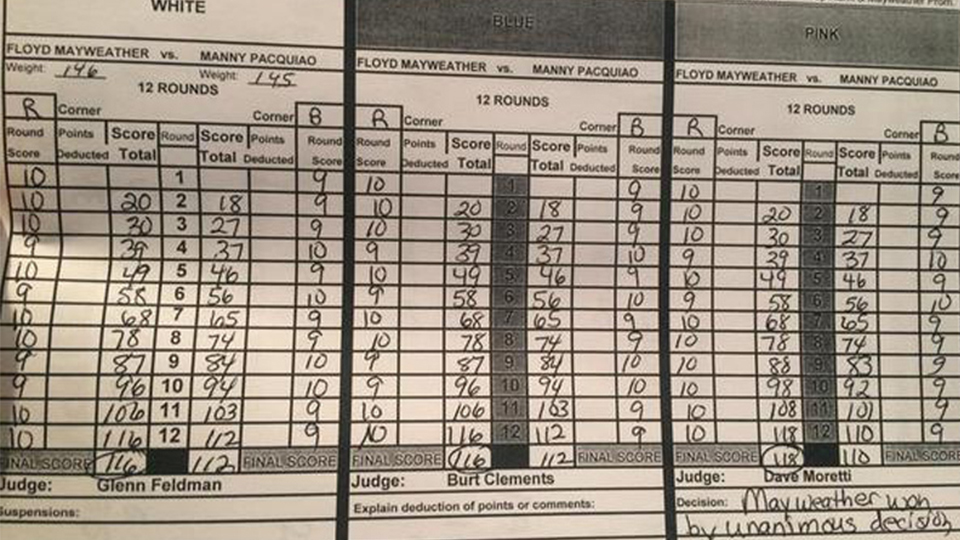 WHITE
FLOYD MAYWEATHER vs. MANNY PACQUIAO
Weight: 146 Weight: 145
12 ROUNDS
R Corner Corner B
Round Points Score Round Score Points Round
Score Deducted Total Total Deducted Score
10 1 9
10 20 2 18 9
10 30 3 27 9
9 39 4 37 10
10 49 5 46 9
9 58 6 56 10
10 68 7 65 9
10 78 8 74 9
9 87 9 84 10
9 96 10 94 10
10 106 11 103 9
10 116 12 112 9
FINAL SCORE 116 112 FINAL SCORE
Judge: Glenn Feldman
Suspensions:
BLUE
FLOYD MAYWEATHER vs. MANNY PACQUIAO
12 ROUNDS
R Corner Corner B
Round Points Score Round Score Points Round
Score Deducted Total Total Deducted Score
10 1 9
10 20 2 18 9
10 30 3 27 9
9 39 4 37 10
10 49 5 46 9
9 58 6 56 10
10 68 7 65 9
10 78 8 74 9
9 87 9 84 10
9 96 10 94 10
10 106 11 103 9
10 116 12 112 9
FINAL SCORE 116 112 FINAL SCORE
Judge: Burt Clements
Explain deduction of points or comments:
Mayweather Prom.
PINK
FLOYD MAYWEATHER vs. MANNY PACQUIAO
12 ROUNDS
R Corner Corner B
Round Points Score Round Score Points Round
Score Deducted Total Total Deducted Score
10 1 9
10 20 2 18 9
10 30 3 27 9
9 39 4 37 10
10 49 5 46 9
9 58 6 56 10
10 68 7 65 9
10 78 8 74 9
10 88 9 83 9
10 98 10 92 9
10 108 11 101 9
10 118 12 110 9
FINAL SCORE 118 110 FINAL SCORE
Judge: Dave Moretti
Decision: Mayweather won
by unanimous decision